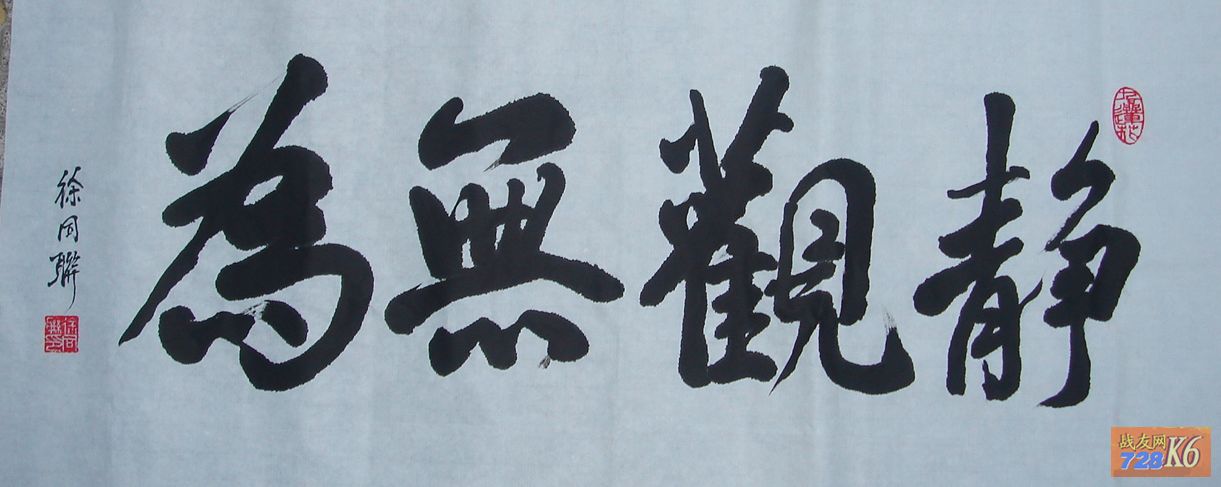 静觀無為
徐同聯
战友网
728K6